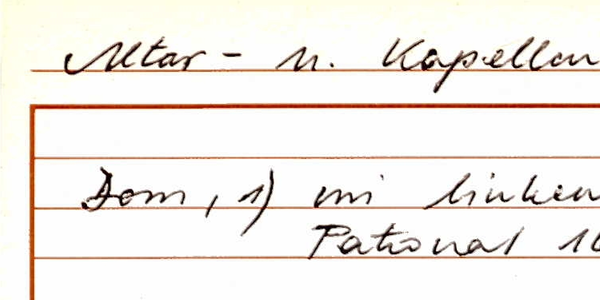 Altar- u. Kapellen
Dom, 1) im linken
Patronat 16